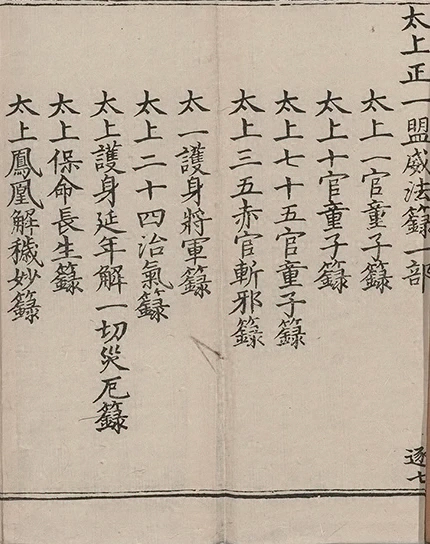 太上正一盟威法籙一部
太上一官童子籙
太上十官童子籙
太上七十五官童子籙
太上三五赤官斬邪籙
太一護身將軍籙
太上二十四治氣籙
太上護身延年解一切災厄籙
太上保命長生籙
太上鳳凰解穢妙籙
逐七